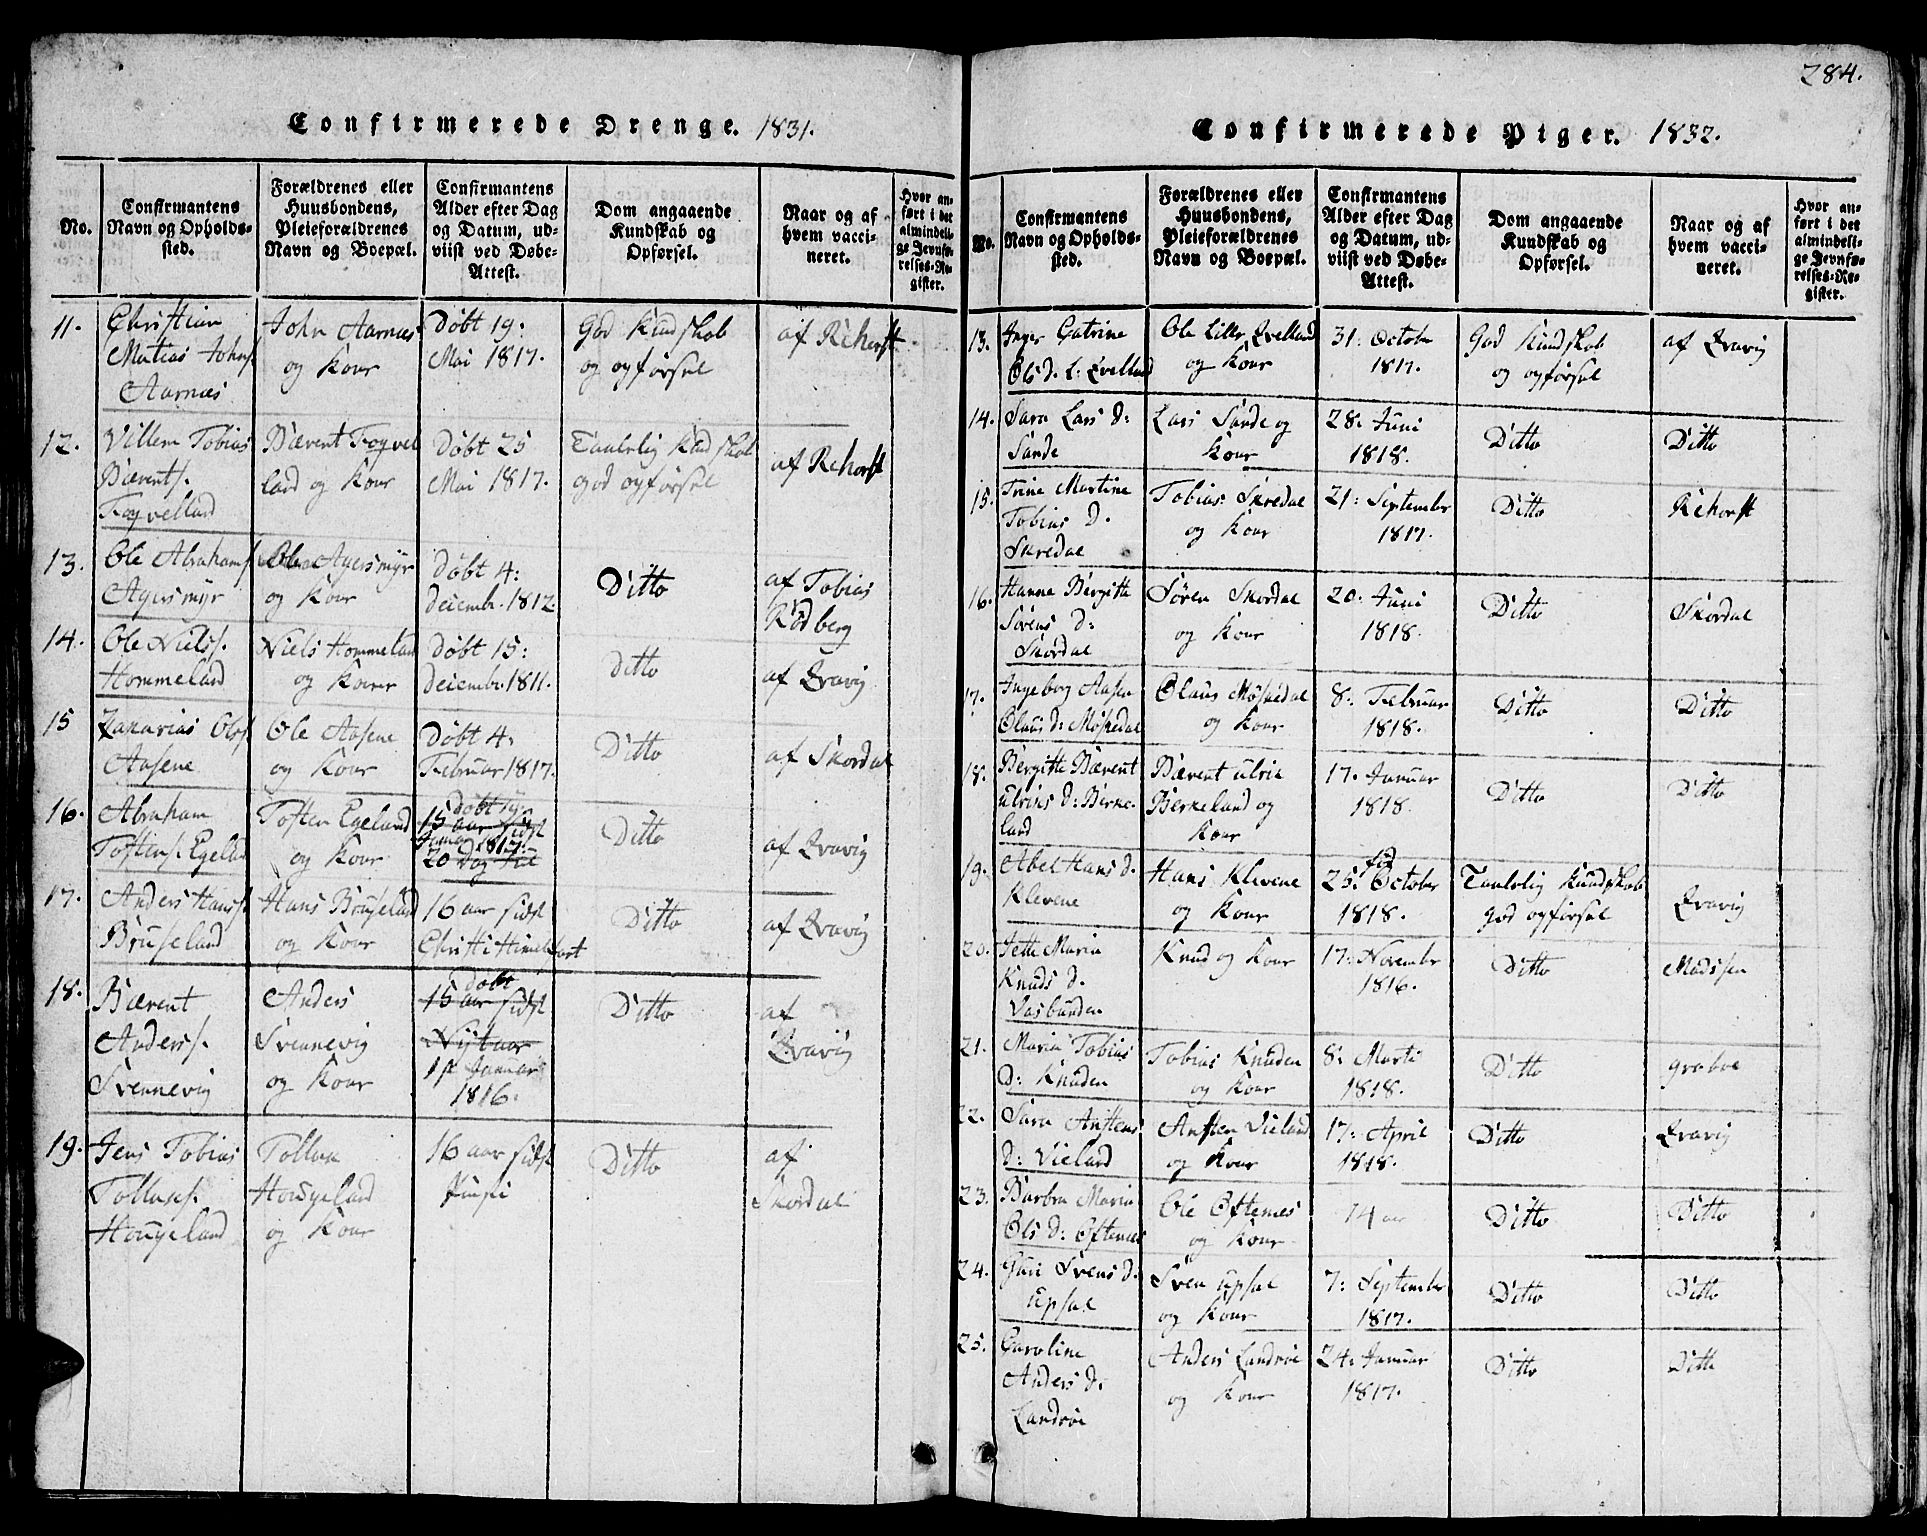 284.
Confirmerede Drenge. 1831.
No.
Confirmantens
Navn og Opholds-
sted.
Forældrenes eller
Huusbondens,
Pleieforældrenes
Navn og Boepæl.
Confirmantens
Alder efter Dag
og Datum, ud-
viist ved Døbe-
Attest.
Dom angaaende
Kundskab og
Opførsel.
Naar og af
hvem vacci-
neret.
Hvor an-
ført i det
almindeli-
ge Jevnfø-
relses-Re-
gister.
11.
Christian
Matias Johns.
Aarnæs
John Aarnæs
og Kone
Døbt 19:
Mai 1817.
God Kundskab
og opførsel
af Rehorst
12.
Villem Tobias
Bærents.
Fogvelland
Bærent Fogvel
land og Kone
Døbt 25
Mai 1817.
Taalelig Kundskab
god opførsel
af Rehorst
13.
Ole Abrahams.
Agersmyr
Ole Agersmyr
og Kone
Døbt 4:
Decembr. 1812
Ditto
af Tobias
Rødberg
14.
Ole Niels.
Hommeland
Niels Hommeland
og Kone
Døbt 15:
Decembr. 1811.
Ditto
af Qvavig
15
Zakarias Ols.
Aasene
Ole Aasene
og Kone
Døbt 4:
Februar 1817.
Ditto
af Skordal
16.
Abraham
Tostens. Egeland
Tosten Egeland
og Kone
Døbt
15 aar sidst
1817.
20 Dag Jul
Ditto
af Qvavig
17.
Anders Hans.
Bruseland
Hans Bruseland
og Kone
16 aar sidst
Christi Himmelfart
Ditto
af Qvavig
18.
Bærent
Anders.
Svennevig
Anders
Svennevig
og Kone
Døbt
15 aar sidst
Nytaar
1st Januar
1816.
Ditto
af
Qvavig
19.
Jens Tobias
Tollaks.
Hougeland
Tollak
Hougeland
og Kone
16 aar sidst
Ditto
af
Skordal
Confirmerede Piger. 1832.
No.
Confirmantens
Navn og Opholds-
sted.
Forældrenes eller
Huusbondens,
Pleieforældrenes
Navn og Boepæl.
Confirmantens
Alder efter Dag
og Datum, ud-
viist ved Døbe-
Attest.
Dom angaaende
Kundskab og
Opførsel.
Naar og af
hvem vacci-
neret.
Hvor an-
ført i det
almindeli-
ge Jevnfø-
relses-Re-
gister.
13.
Inger Catrine
Ols D. L: Qvelland
Ole Lille Qvelland
og Kone
31: October
1817.
God Kundskab
og opførsel
af Qvavig
14.
Sara Lars D:
Sande
Lars Sande og
Kone
28: Juni
1818.
Ditto
Ditto
15.
Trine Martine
Tobias D.
Skredal
Tobias Skredal
og Kone
21: September
1817.
Ditto
Rehorst
16.
Hanne Bergitte
Sørens D:
Skordal
Søren Skordal
og Kone
20: Juni
1818.
Ditto
Skordal
17.
Ingeborg Aasen
Olaus D: Møskedal
Olaus Møskedal
og Kone
8: Februar
1818.
Ditto
Ditto
18.
Bergitte Bærent
Ulriks D: Berke-
land
Bærent Ulrik
Berkeland og
Kone
17. Januar
1818.
Ditto
Ditto
19.
Abel Hans D.
Klevene
Hans Klevene
og Kone
fød
25. October
1818.
Taalelig Kundskab
god opførsel
Qvavig
20.
Jette Maria
Knuds D.
Vasbunden
Knud og Kone
17: Novembr
1816.
Ditto
Madssen
21.
Maria Tobias
D: Knuden
Tobias Knuden
og Kone
8: Marti
1818.
Ditto
Graboe
22.
Sara Anstens
D: Vieland
Ansten Vieland
og Kone
17: April
1818.
Ditto
Qvavig
23.
Barbra Maria
Ols D: Oftenes
Ole Oftenes
og Kone
14 aar
Ditto
Ditto
24.
Guri Svens D.
Upsal
Sven Upsal
og Kone
7: September
1817.
Ditto
Ditto
25.
Caroline
Anders D.
Landrøe
Anders Landrøe
og Kone
24: Januar
1817.
Ditto
Ditto